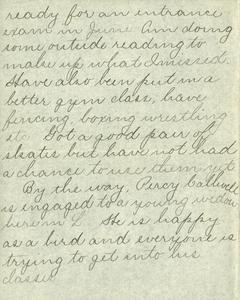 ready for an entrance
exam in June Am doing
some outside reading to
make up what I missed.
Have also been put in a
better gym class, have
fencing, boxing wrestling
etc. Got a good pair of
skates but have not had
a chance to use them yet
By the way, Percy
is engaged to a young widow
here in L. He is happy
as a bird and everyone is
trying to get into his
classes